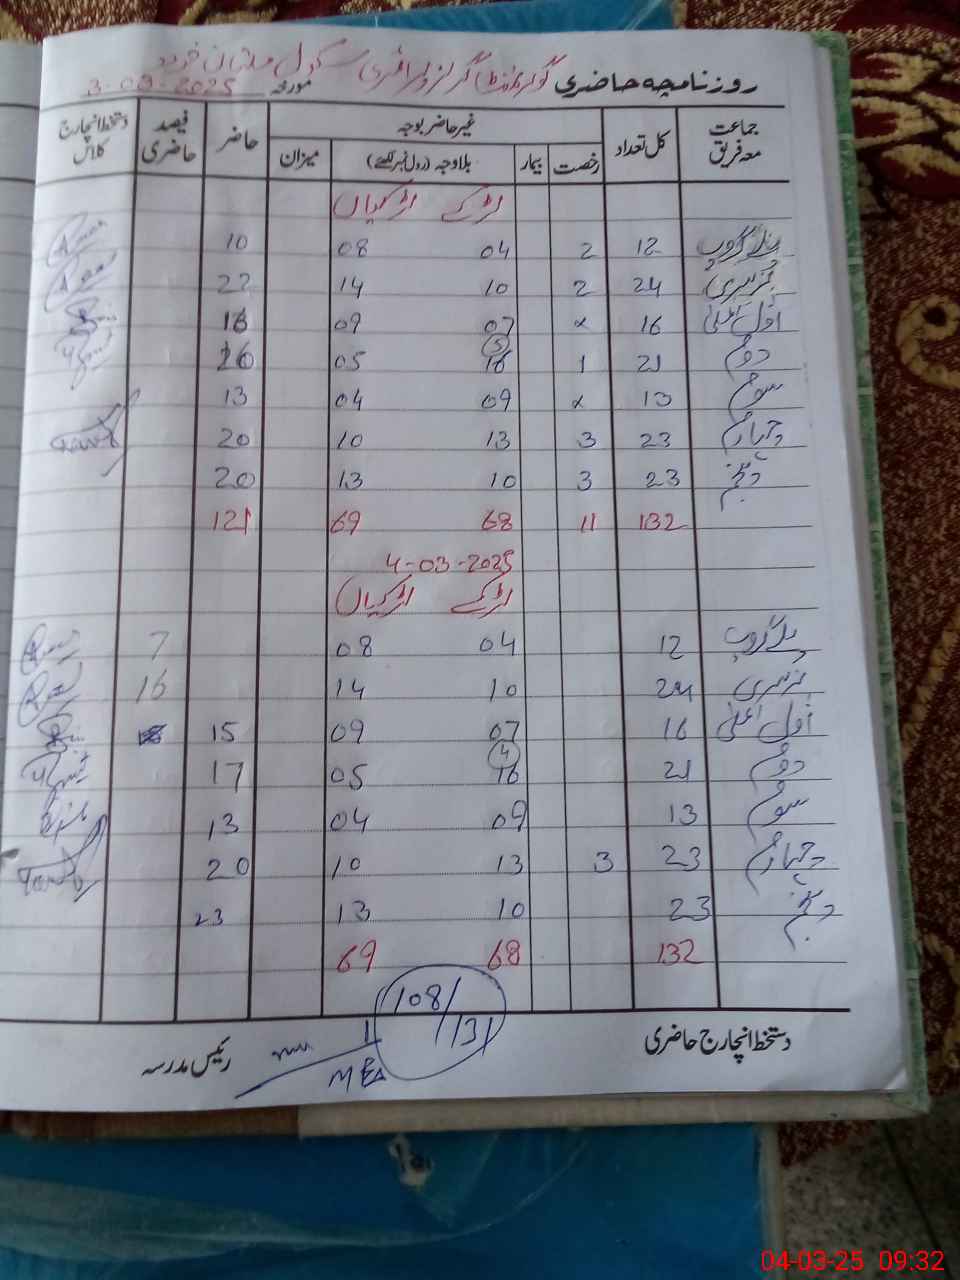 روزنامچہ حاضری گورنمنٹ گرلز پرائمری سکول ملتان خورد مورخہ 3-03-2025
جماعت معہ فریق کل تعداد غیر حاضر بوجہ حاضر فیصد حاضری دستخط انچارج کلاس
رخصت بیمار بلاوجہ (رول نمبر لکھئے) میزان
لڑکے لڑکیاں
پلے گروپ 12 2 04 08 10
نرسری 24 2 10 14 22
اول اعلیٰ 16 × 07 09 16
دوم 21 1 (5) 16 05 20
سوم 13 × 09 04 13
چہارم 23 3 13 10 20
پنجم 23 3 10 13 20
132 11 68 69 121
4-03-2025
لڑکے لڑکیاں
پلے گروپ 12 04 08 7
نرسری 24 10 14 16
اول اعلیٰ 16 07 09 15
دوم 21 (4) 16 05 17
سوم 13 09 04 13
چہارم 23 3 13 10 20
پنجم 23 10 13 23
132 68 69
108/131
MEA
دستخط انچارج حاضری رئیس مدرسہ
04-03-25 09:32